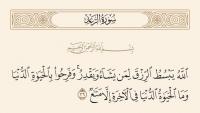 سورة الرعد
بسم الله الرحمن الرحيم
ٱللَّهُ يَبۡسُطُ ٱلرِّزۡقَ لِمَن يَشَآءُ وَيَقۡدِرُۚ وَفَرِحُواْ بِٱلۡحَيَوٰةِ ٱلدُّنۡيَا
وَمَا ٱلۡحَيَوٰةُ ٱلدُّنۡيَا فِي ٱلۡأٓخِرَةِ إِلَّا مَتَٰعٞ